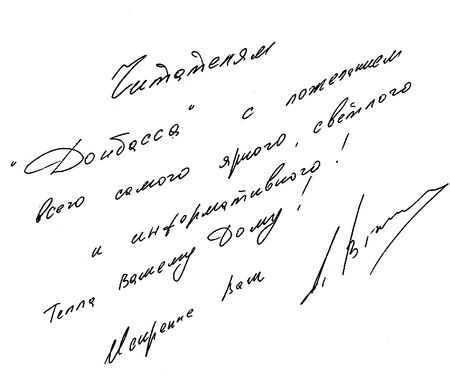 Читателям
"Донбасса" с пожеланием
всего самого яркого, светлого
и информативного!
Тепла Вашему Дому!
Искренне Ваш